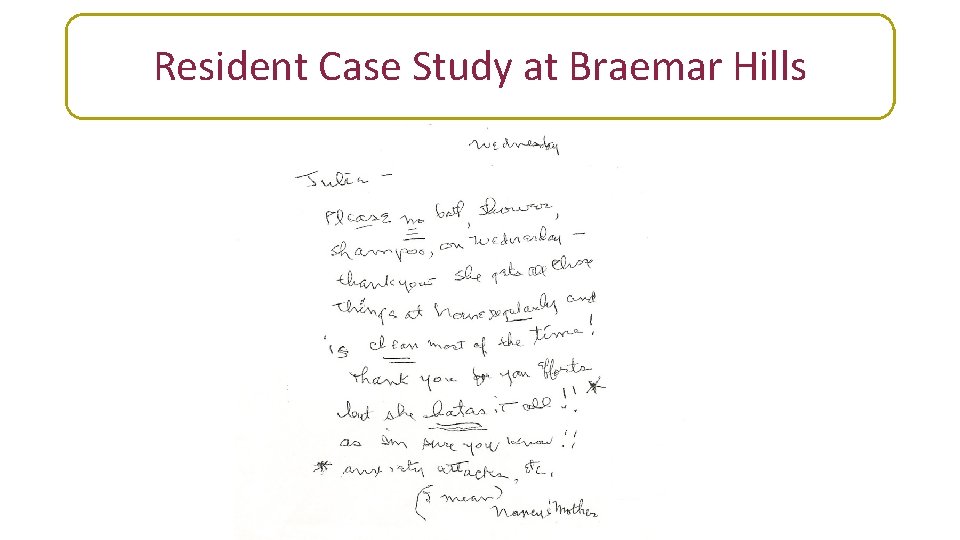 Resident Case Study at Braemar Hills
Wednesday
Julia -
Please no bath, shower,
shampoo, on Wednesday -
thank you she gets all those
things at home regularly and
is clean most of the time!
thank you for you efforts
but she hates it all!! *
as im sure you know!!
* anxiety attacks, etc.
(I mean)
Nancy's Mother